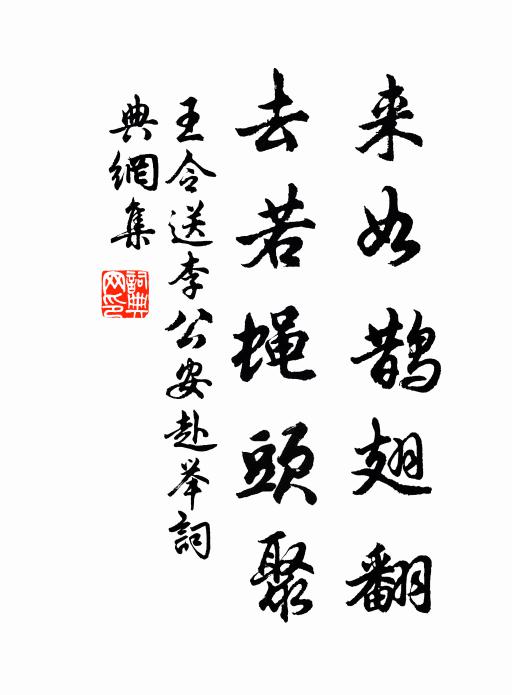 来如鹊翅翻
去若蝇頭聚
王令送李公安赴举詞
典網集
詞典网印